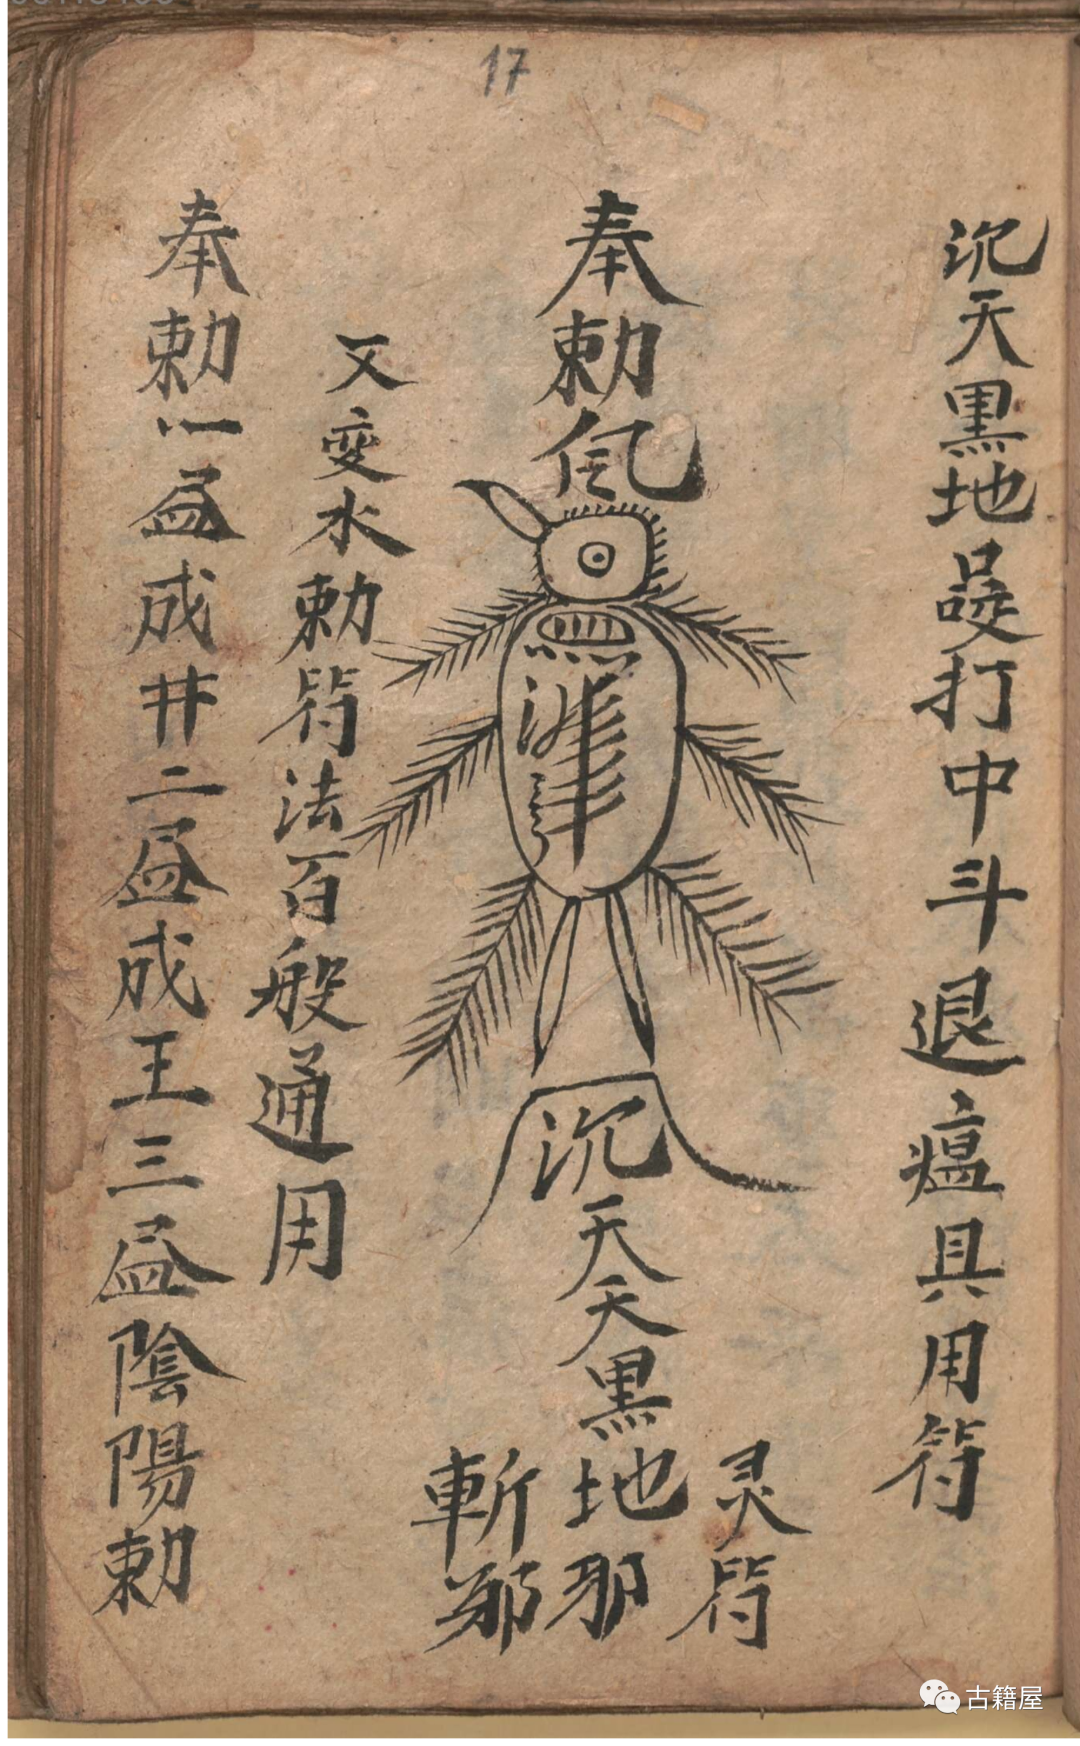 17
沉天黒地
打中斗退瘟具用符
奉勅
沉
天天黒地邪
灵符
斬邪
又变水勅符法百般通用
奉勅一盆成井二盆成王三盆陰陽勅
古籍屋